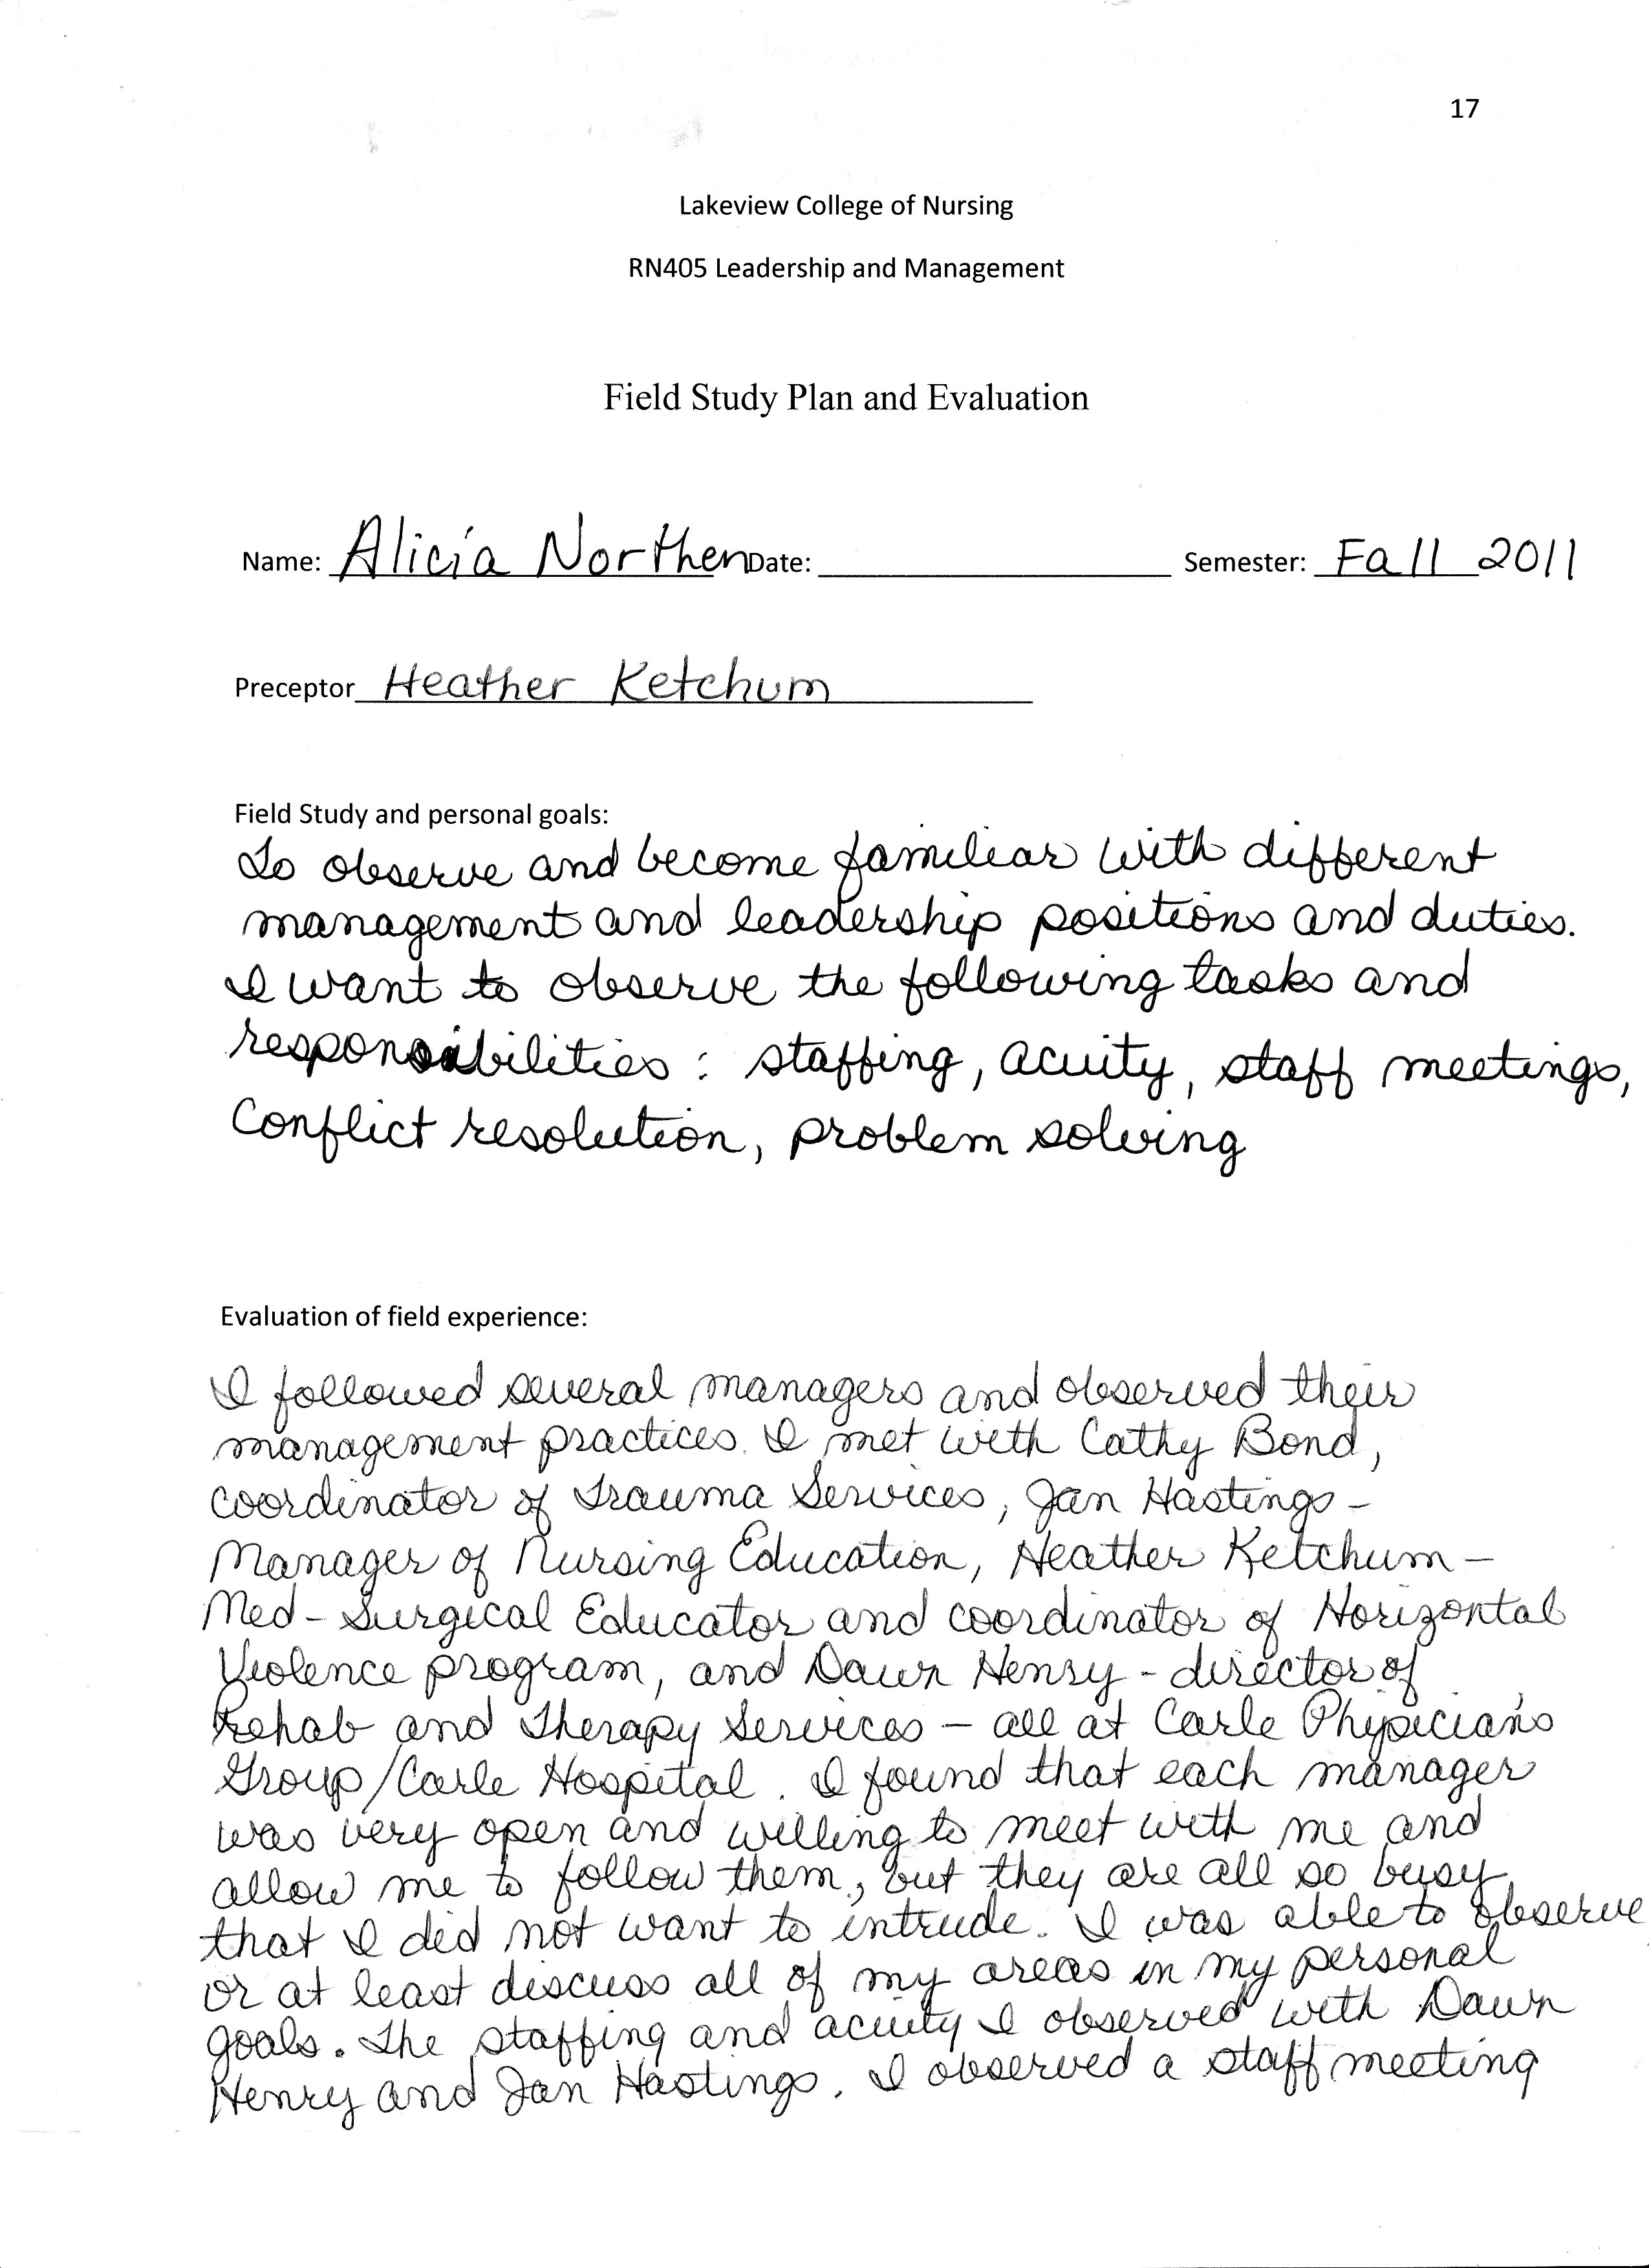 17
Lakeview College of Nursing
RN405 Leadership and Management
Field Study Plan and Evaluation
Name: Alicia Northen Date: Semester: Fall 2011
Preceptor Heather Ketchum
Field Study and personal goals:
To observe and become familiar with different
management and leadership positions and duties.
I want to observe the following tasks and
responsibilities: staffing, acuity, staff meetings,
Conflict resolution, problem solving
Evaluation of field experience:
I followed several managers and observed their
management practices. I met with Cathy Bond,
coordinator of Trauma Services, Jan Hastings -
Manager of Nursing Education, Heather Ketchum -
Med-Surgical Educator and coordinator of Horizontal
Violence program, and Dawn Henry - director of
Rehab and Therapy Services - all at Carle Physician's
Group/Carle Hospital. I found that each manager
was very open and willing to meet with me and
allow me to follow them, but they are all so busy
that I did not want to intrude. I was able to observe
or at least discuss all of my areas in my personal
goals. The staffing and acuity I observed with Dawn
Henry and Jan Hastings. I observed a staff meeting